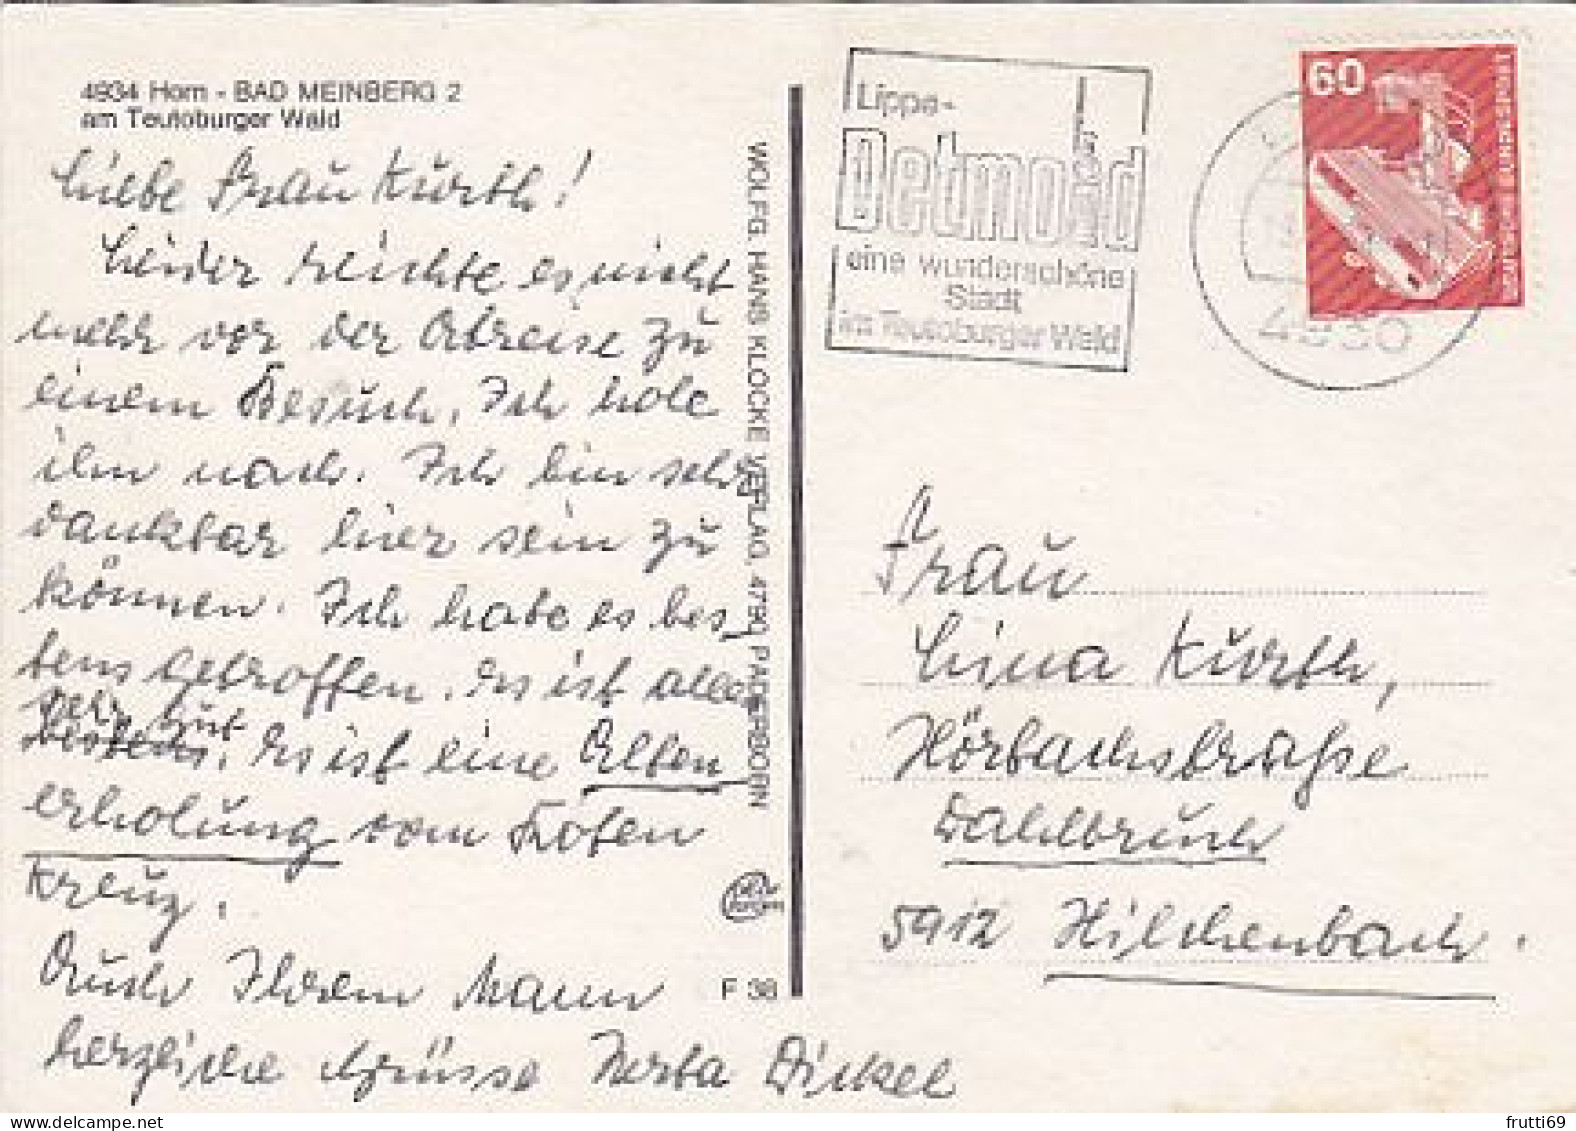 4934 Horn - BAD MEINBERG 2
am Teutoburger Wald
Liebe Frau Kurth!
Leider reichte es nicht
mehr vor der Abreise zu
einem Besuch. Ich hole
ihn nach. Ich bin sehr
dankbar hier sein zu
können. Ich habe es bes
tens getroffen. Es ist alles
sehr gut
bestens. Es ist eine Alten
erholung vom Roten
Kreuz.
Auch Ihrem Mann
herzliche Grüsse Herta Dickel
WOLFG. HANS KLOCKE VERLAG, 4790 PADERBORN
F 38
Lippe-
Detmold
eine wunderschöne
Stadt
im Teutoburger Wald
4930
60
DEUTSCHE BUNDESPOST
Frau
Lina Kurth,
Hörbachstraße
Dahlbruch
5912 Hilchenbach.
frutti69